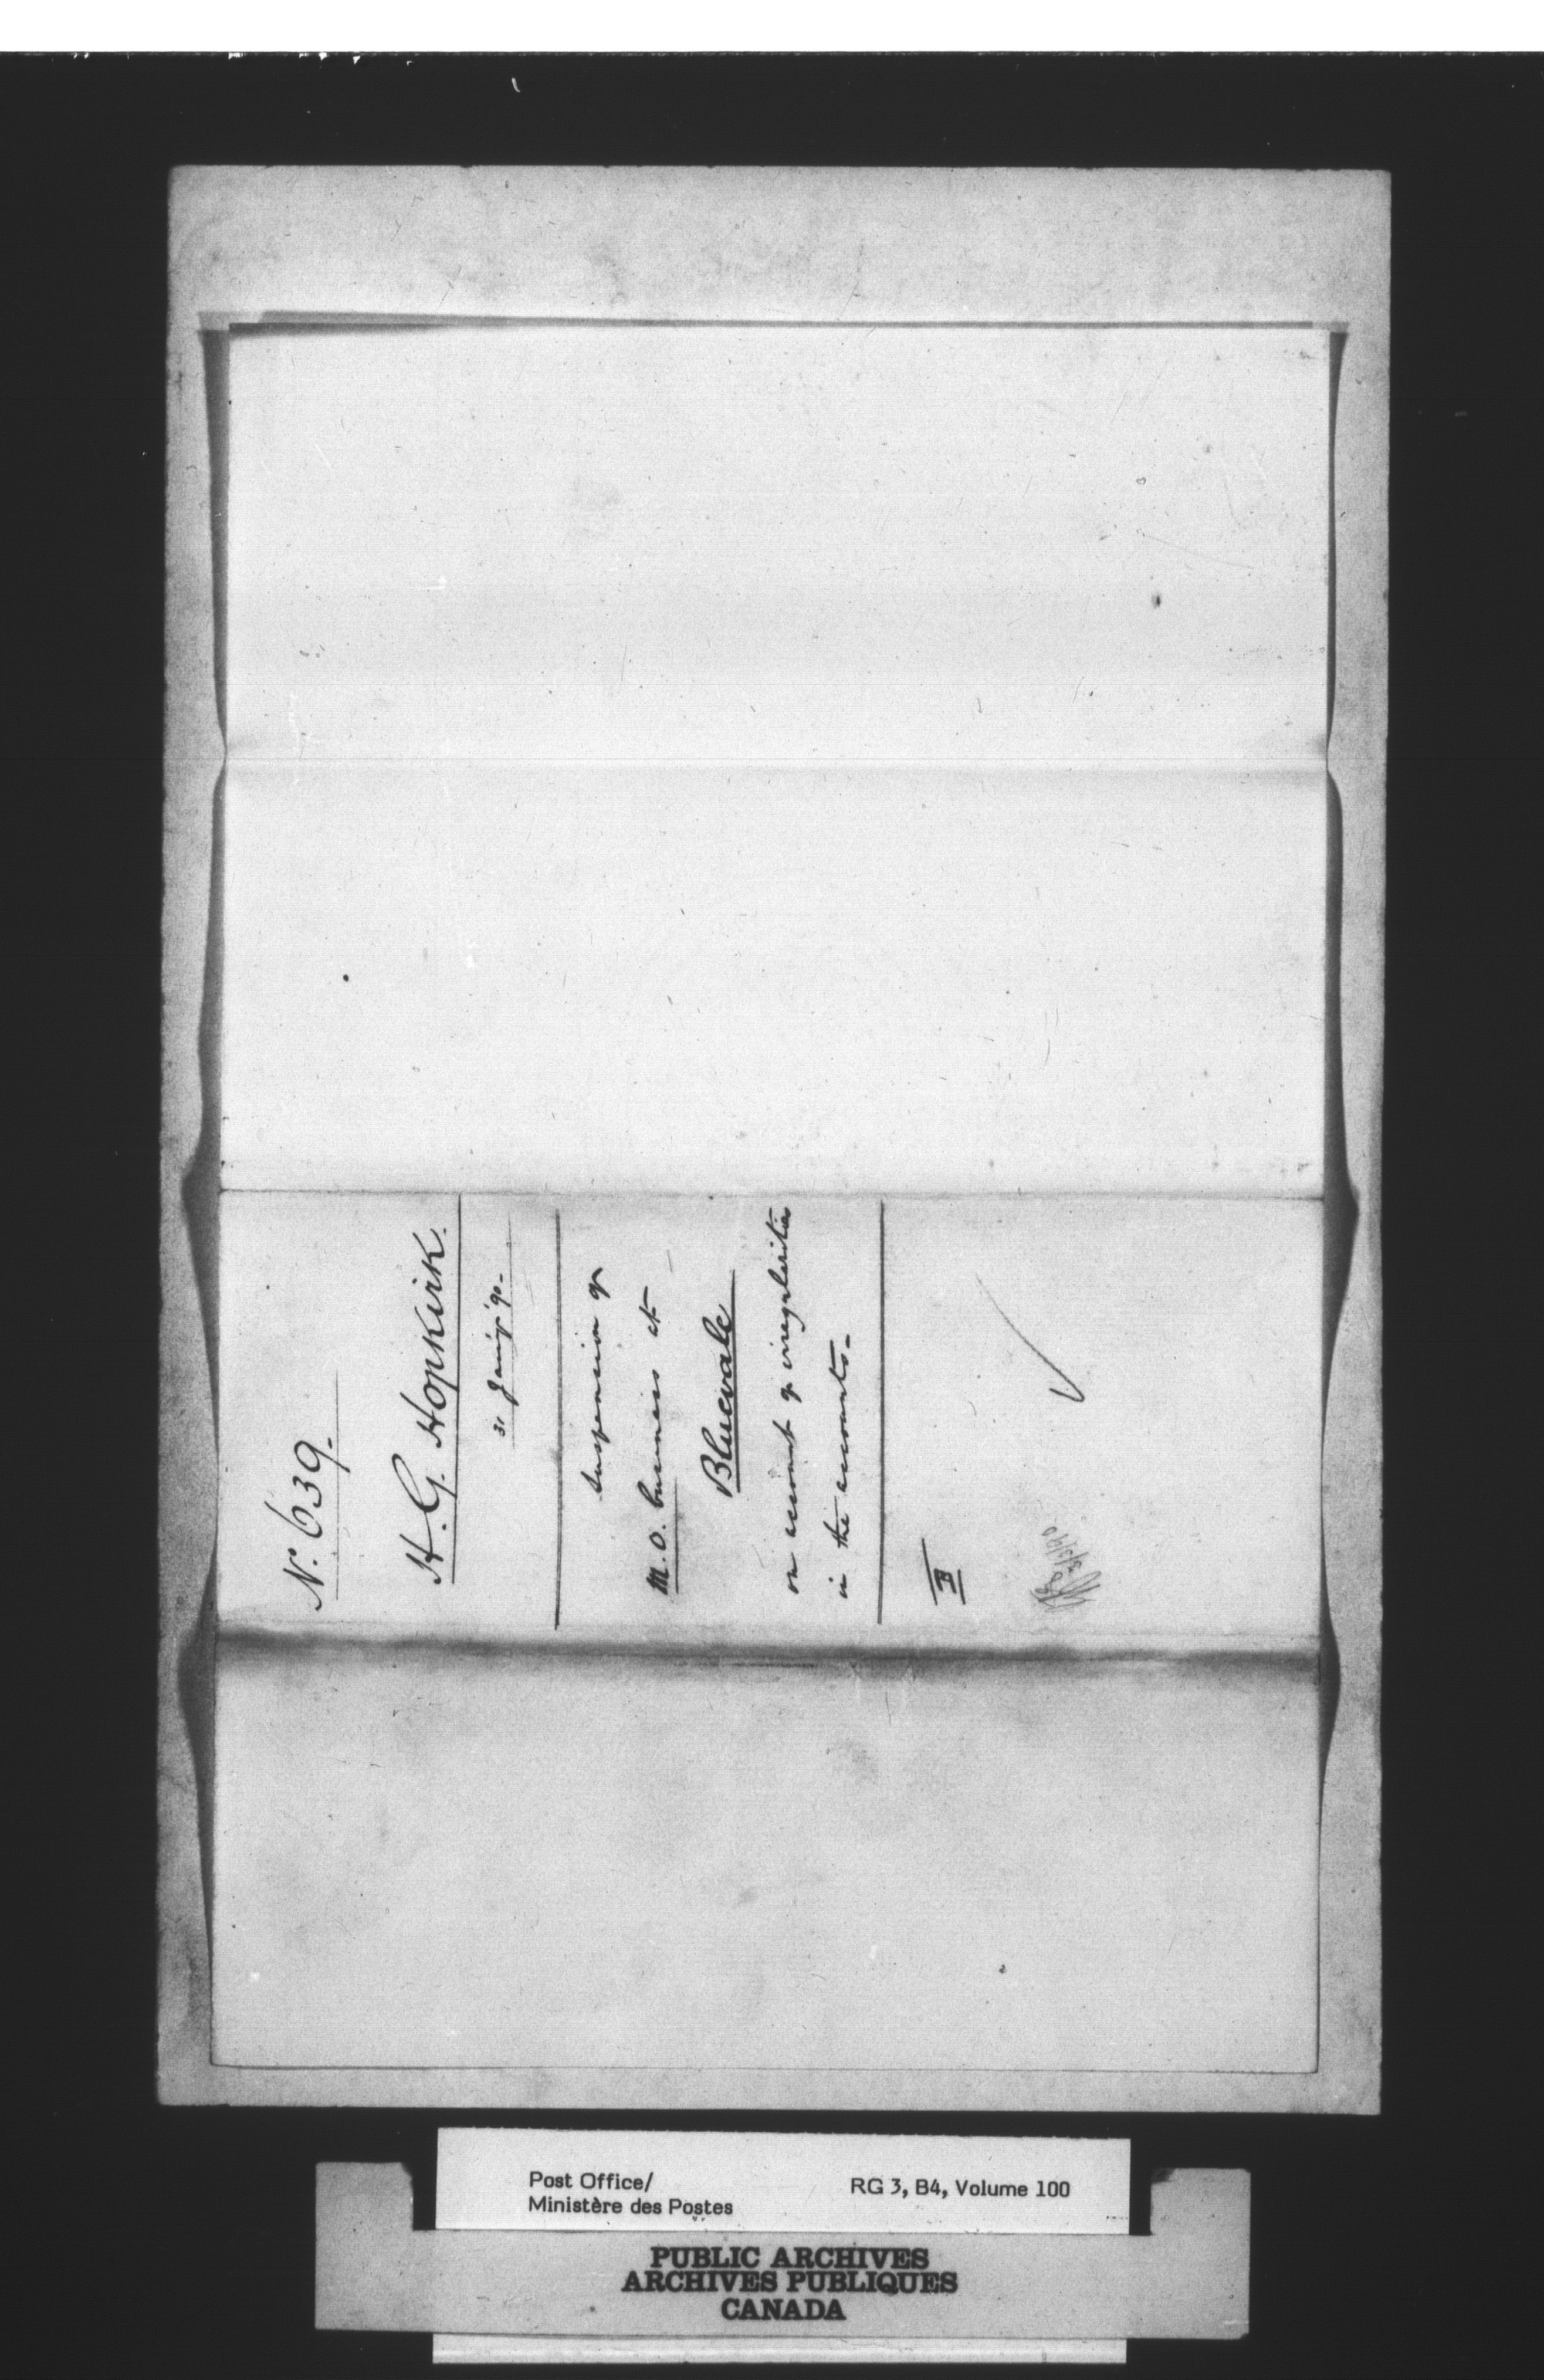 No. 639.
H. G. Hopkirk.
31 Jany '90.
Suspension of
M.O. business at
Bluevale
on account of irregularities
in the accounts.
3/3/90
Post Office/
Ministère des Postes
RG 3, B4, Volume 100
PUBLIC ARCHIVES
ARCHIVES PUBLIQUES
CANADA